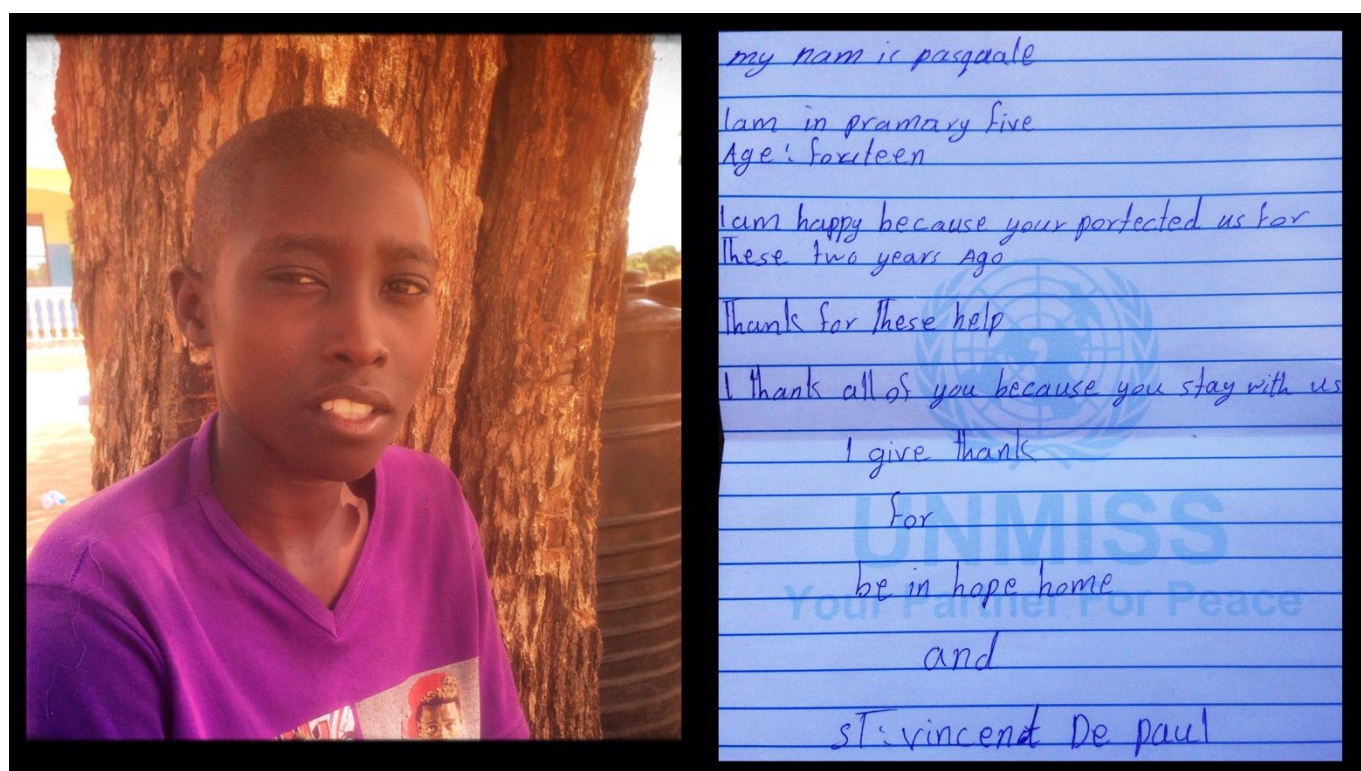 my nam is pasquale
I am in pramary five
Age: fourteen
I am happy because your portected us for
These two years Ago
Thank for These help
I Thank all of you because you stay with us
I give Thank
for
be in hope home
and
ST: vincent De paul
UNMISS
Your Partner For Peace